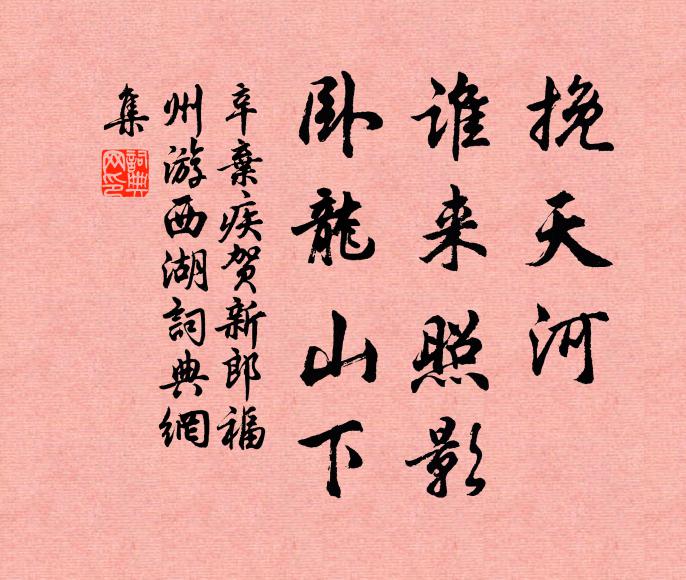 挽天河
谁来照影
卧龙山下
辛棄疾贺新郎福
州游西湖詞典網
集
詞典
网印